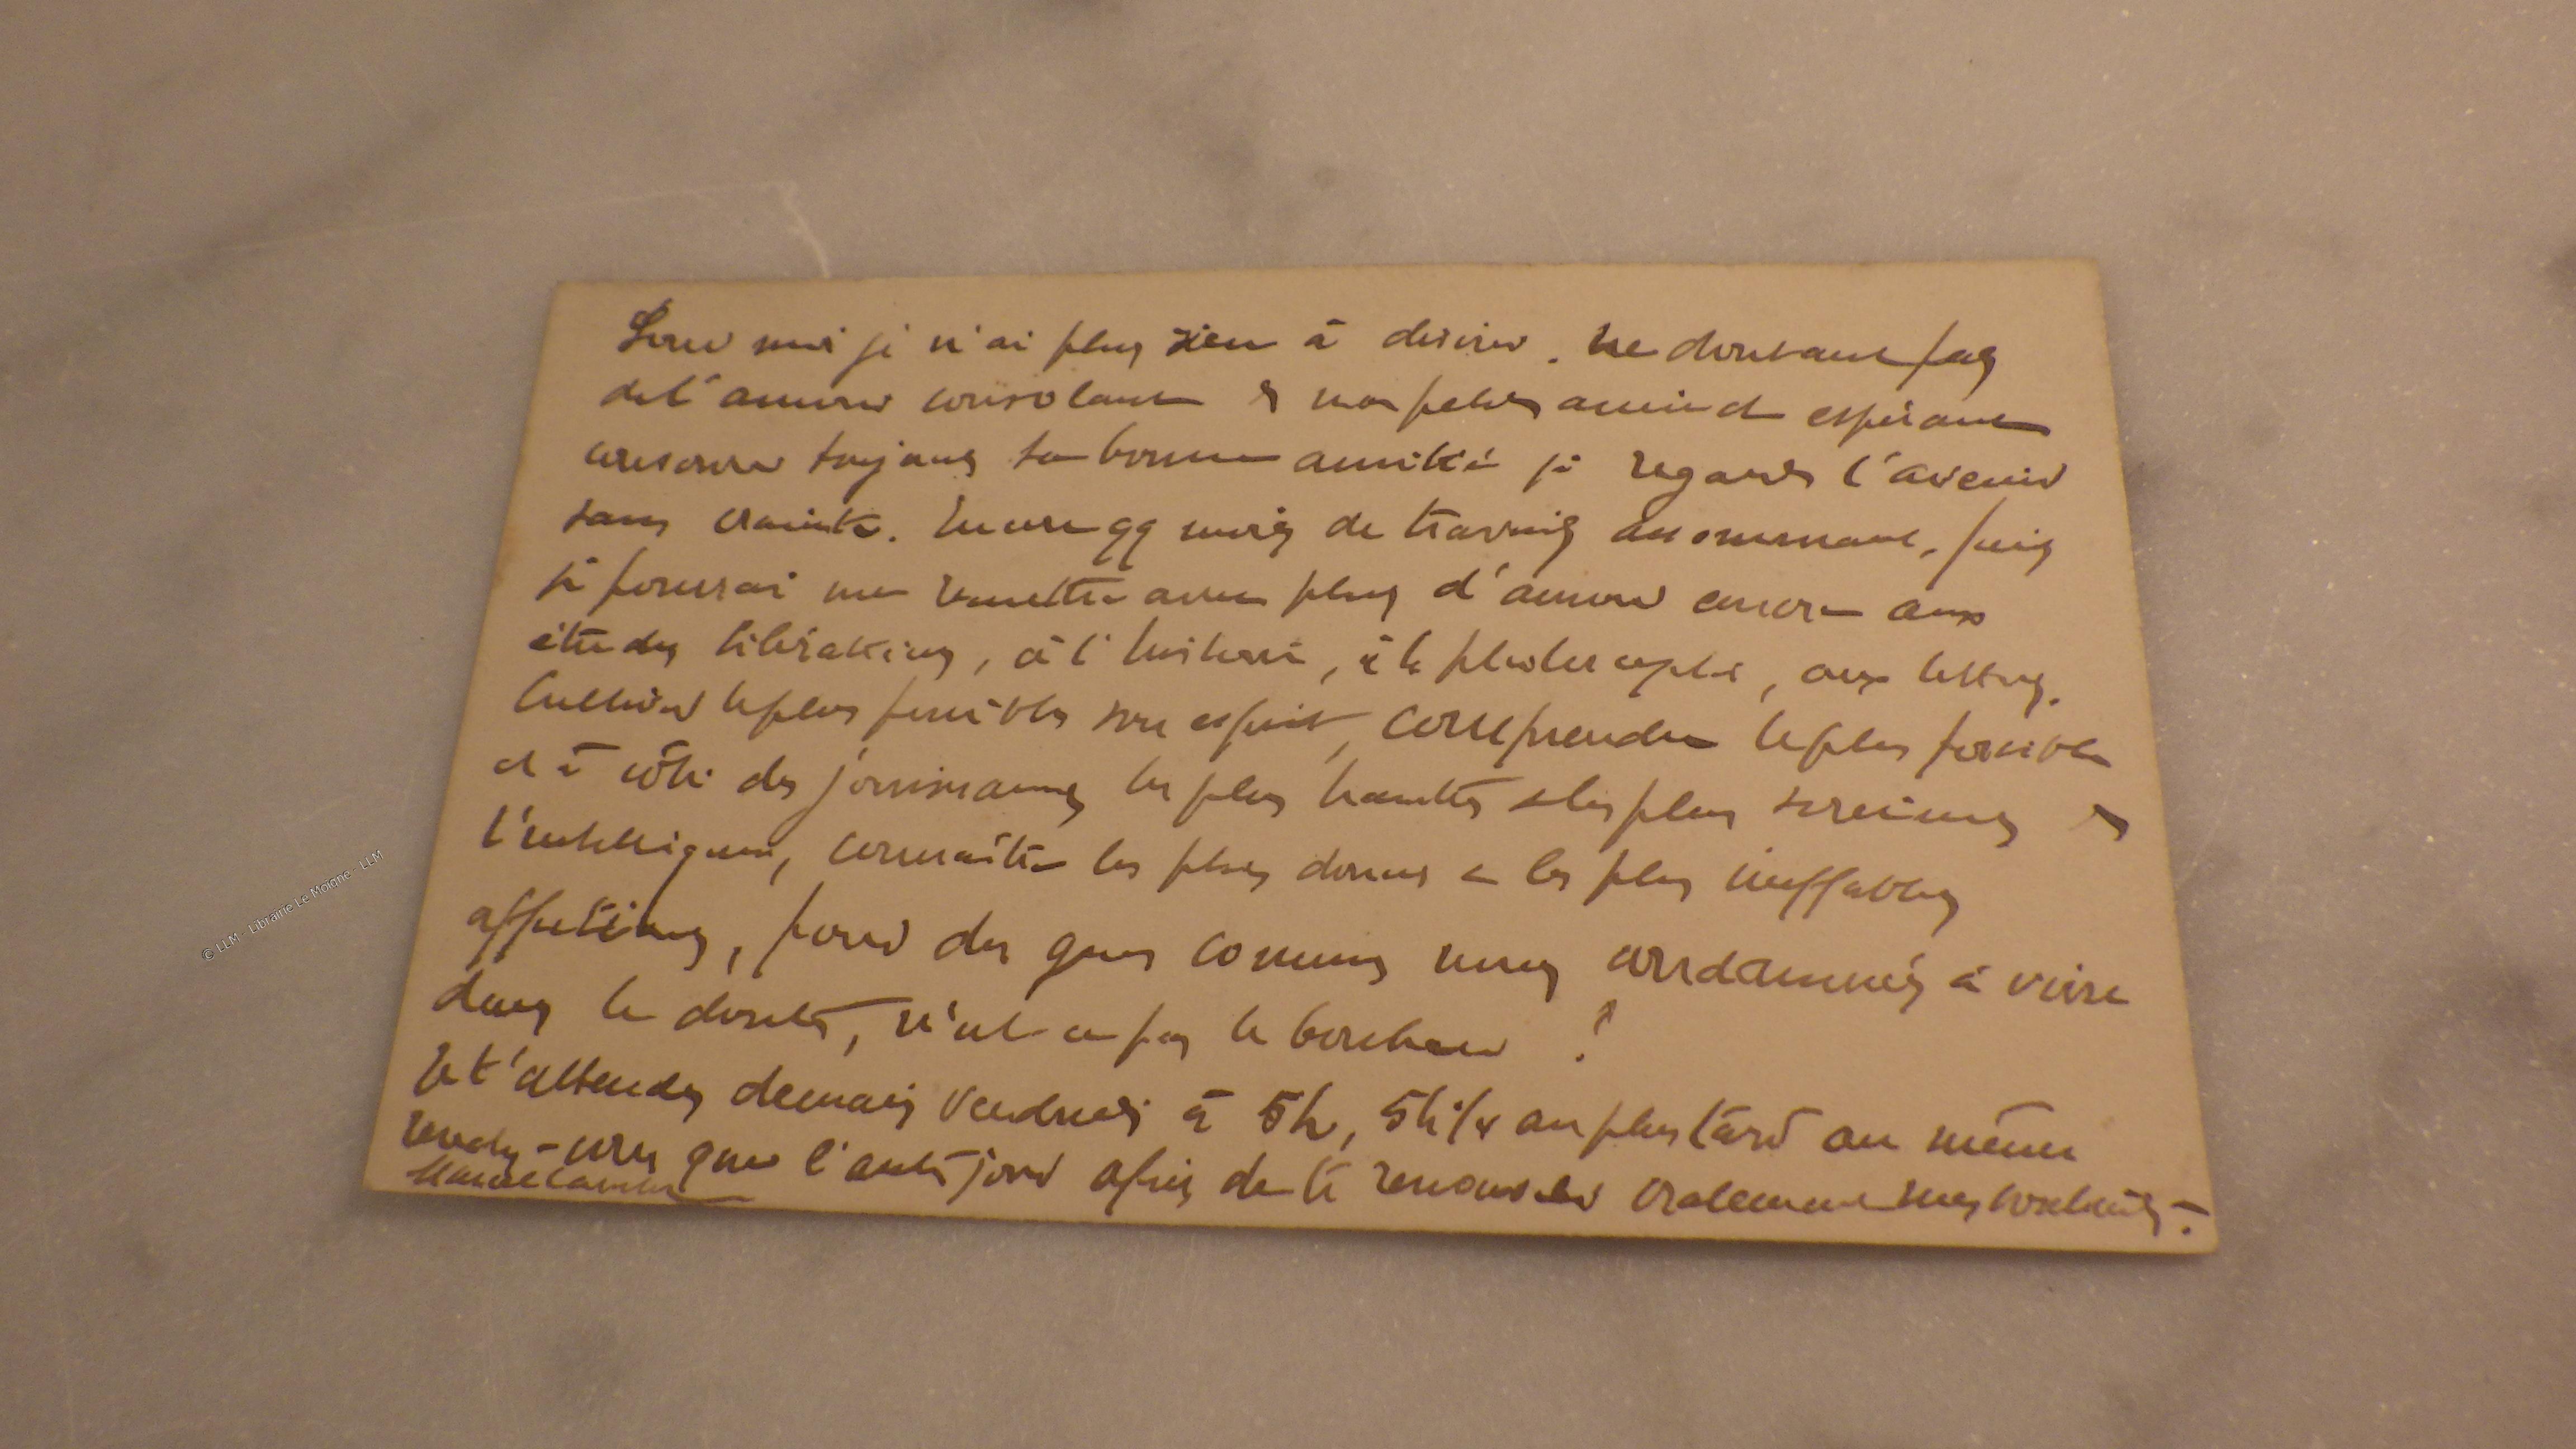 Pour moi je n'ai plus rien à désirer. Ne doutant pas
de l'amour consolant de ma petite amie et espérant
conserver toujours ta bonne amitié je regarde l'avenir
sans crainte. Encore qq mois de travail assommant, puis
je pourrai me remettre avec plus d'amour encore aux
études libératrices, à l'histoire, à la philosophie, aux lettres.
Cultiver le plus possible son esprit, comprendre le plus possible
et à côté des jouissances les plus hautes et les plus sereines de
l'intelligence, connaître les plus douces et les plus ineffables
affections, pour des gens comme nous condamnés à vivre
dans le doute, n'est-ce pas le bonheur ?
Je t'attends demain Vendredi à 5h, 5h 1/4 au plus tard au même
rendez-vous que l'autre jour afin de te renouveler oralement mes souhaits.
Marcel
© LLM - Librairie Le Moine - LLM